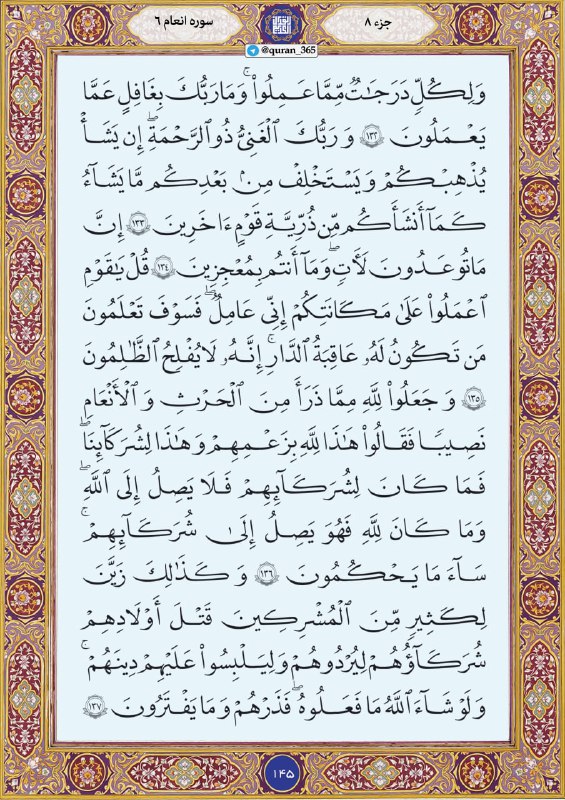 جزء ۸
سوره انعام ۶
@quran_365
وَلِكُلٍّ دَرَجَاتٌ مِّمَّا عَمِلُوا۟ ۚ وَمَا رَبُّكَ بِغَافِلٍ عَمَّا
يَعْمَلُونَ ۝١٣٢ وَرَبُّكَ الْغَنِيُّ ذُو الرَّحْمَةِ ۚ إِن يَشَأْ
يُذْهِبْكُمْ وَيَسْتَخْلِفْ مِنۢ بَعْدِكُم مَّا يَشَآءُ
كَمَآ أَنشَأَكُم مِّن ذُرِّيَّةِ قَوْمٍ ءَاخَرِينَ ۝١٣٣ إِنَّ
مَا تُوعَدُونَ لَأَتٍ ۖ وَمَآ أَنتُم بِمُعْجِزِينَ ۝١٣٤ قُلْ يَاقَوْمِ
اعْمَلُوا۟ عَلَىٰ مَكَانَتِكُمْ إِنِّي عَامِلٌ ۖ فَسَوْفَ تَعْلَمُونَ
مَن تَكُونُ لَهُۥ عَاقِبَةُ الدَّارِ ۚ إِنَّهُۥ لَا يُفْلِحُ الظَّالِمُونَ
۝١٣٥ وَجَعَلُوا۟ لِلَّهِ مِمَّا ذَرَأَ مِنَ الْحَرْثِ وَالْأَنْعَامِ
نَصِيبًا فَقَالُوا۟ هَٰذَا لِلَّهِ بِزَعْمِهِمْ وَهَٰذَا لِشُرَكَآئِنَا ۖ
فَمَا كَانَ لِشُرَكَآئِهِمْ فَلَا يَصِلُ إِلَى اللَّهِ ۖ
وَمَا كَانَ لِلَّهِ فَهُوَ يَصِلُ إِلَىٰ شُرَكَآئِهِمْ ۗ
سَآءَ مَا يَحْكُمُونَ ۝١٣٦ وَكَذَٰلِكَ زَيَّنَ
لِكَثِيرٍ مِّنَ الْمُشْرِكِينَ قَتْلَ أَوْلَادِهِمْ
شُرَكَآؤُهُمْ لِيُرْدُوهُمْ وَلِيَلْبِسُوا۟ عَلَيْهِمْ دِينَهُمْ ۖ
وَلَوْ شَآءَ اللَّهُ مَا فَعَلُوهُ ۖ فَذَرْهُمْ وَمَا يَفْتَرُونَ ۝١٣٧
۱۴۵